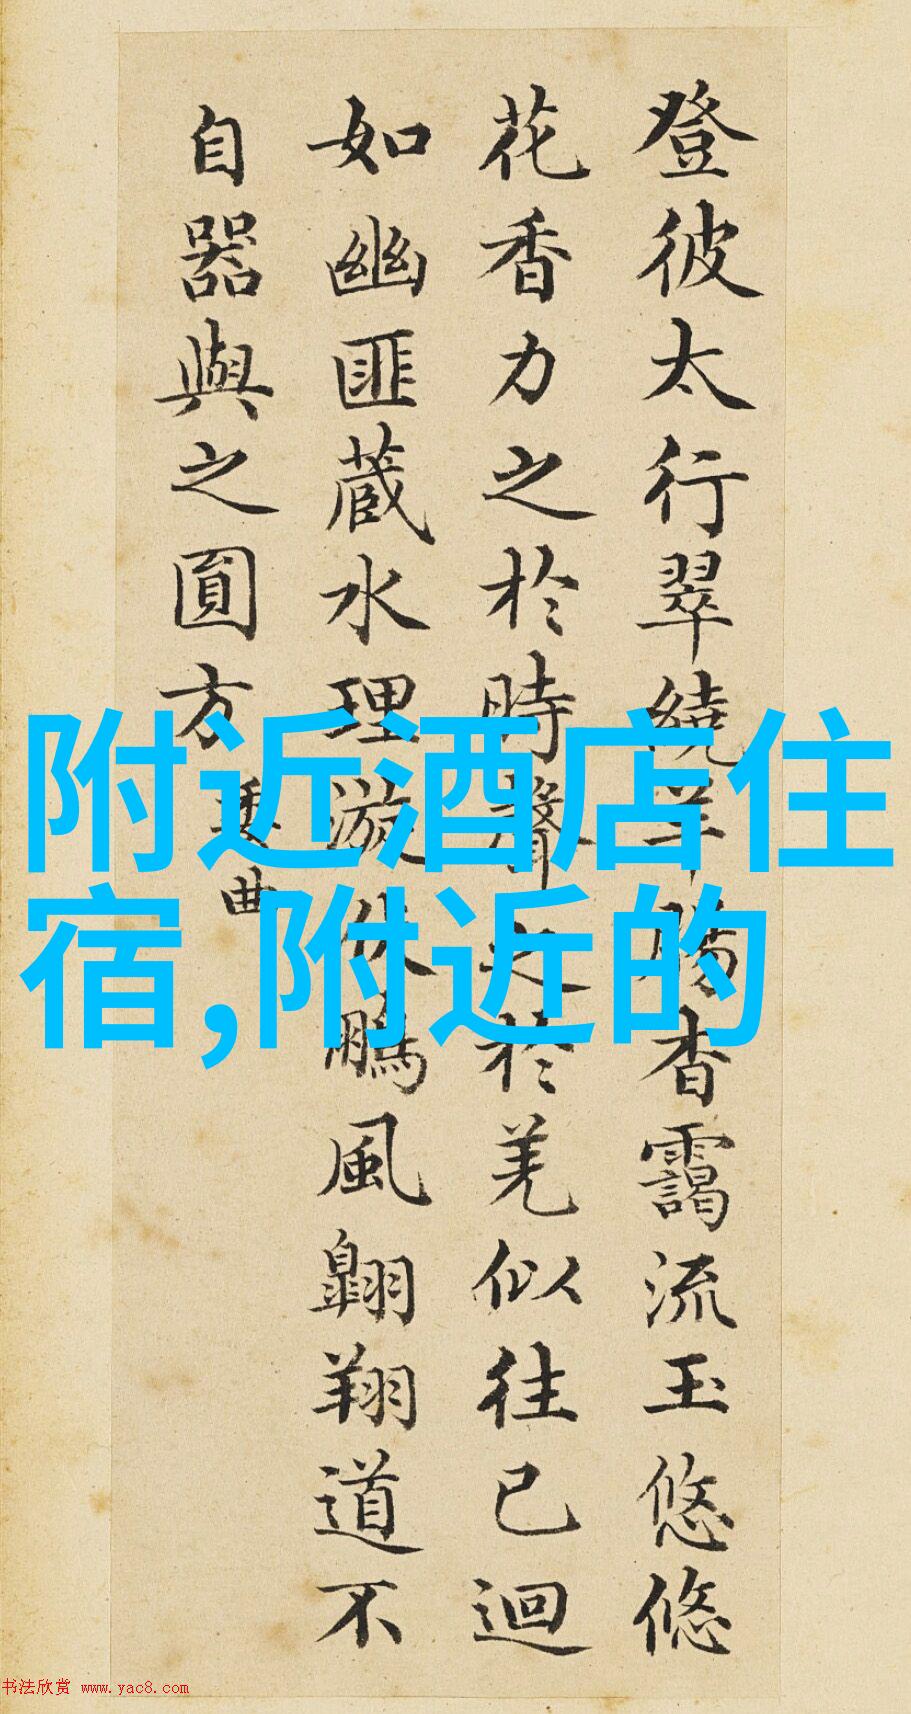 登彼太行翠繞羊腸杳靄流玉悠悠
花香力之於時聲之於羌似往已迴
如幽匪蔵水理漩伏鵬風翺翔道不
自器與之圓方
委曲
附近酒店住
宿,附近的
书法欣赏 www.yac8.com